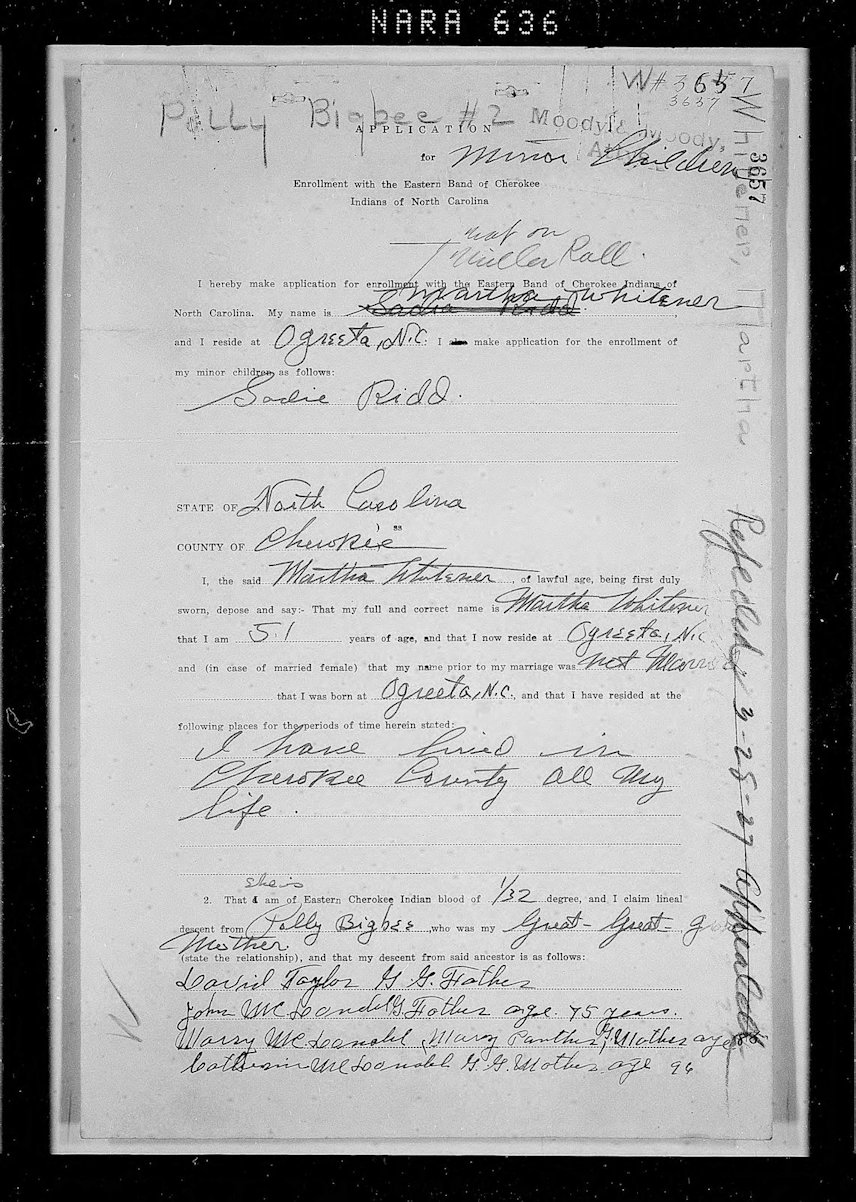 NARA 636
W# 3657
3637
Polly Bigbee #2
Moody & Moody,
APPLICATION
for Minor Children
3657
Enrollment with the Eastern Band of Cherokee
Indians of North Carolina
not on
Miller Roll.
I hereby make application for enrollment with the Eastern Band of Cherokee Indians of
Martha Whitener
North Carolina. My name is Sadie Ridd
and I reside at Ogreeta, N.C. I make application for the enrollment of
my minor children as follows:
Sadie Ridd.
STATE OF North Carolina
) ss
COUNTY OF Cherokee
I, the said Martha Whitener, of lawful age, being first duly
sworn, depose and say:- That my full and correct name is Martha Whitener
that I am 51 years of age, and that I now reside at Ogreeta, N.C
and (in case of married female) that my name prior to my marriage was not Married
that I was born at Ogreeta, N.C., and that I have resided at the
following places for the periods of time herein stated:
I have lived in
Cherokee County all my
life.
she is
2. That I am of Eastern Cherokee Indian blood of 1/32 degree, and I claim lineal
descent from Polly Bigbee, who was my Great-Great-
Mother
(state the relationship), and that my descent from said ancestor is as follows:
David Taylor G G. Father
John McDandel G. Father age 75 years.
Marry McDandel, Mary Panther, G. Mother age
Catherin McDandel G. G. Mother age 96
Whitener, Martha
Rejected, 3-25-27 appealed